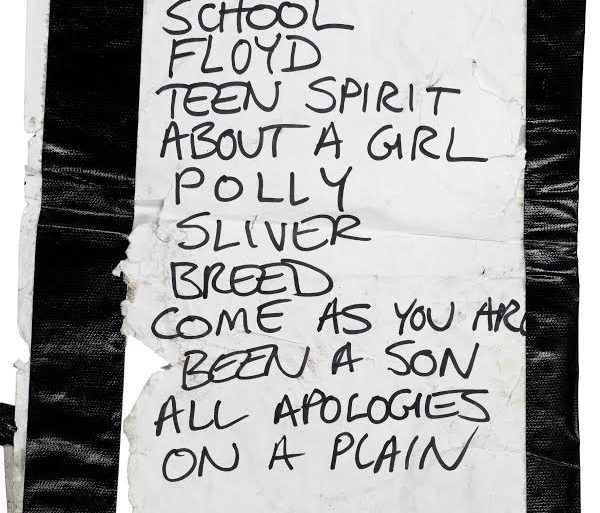 SCHOOL
FLOYD
TEEN SPIRIT
ABOUT A GIRL
POLLY
SLIVER
BREED
COME AS YOU ARE
BEEN A SON
ALL APOLOGIES
ON A PLAIN